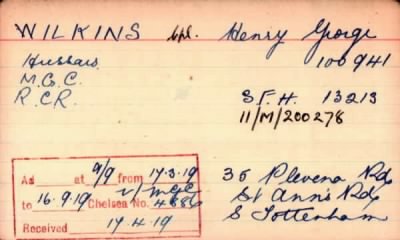 WILKINS Cpl. Henry George
100941
Hussars
M.G.C.
R.C.R.
S.F.H. 13213
11/M/200278
As at 9/9 from 17.3.19
to 16.9.19 Chelsea No. 4886
Received 17.4.19
36 Plevena Rd
St Ann's Rd
S Tottenham